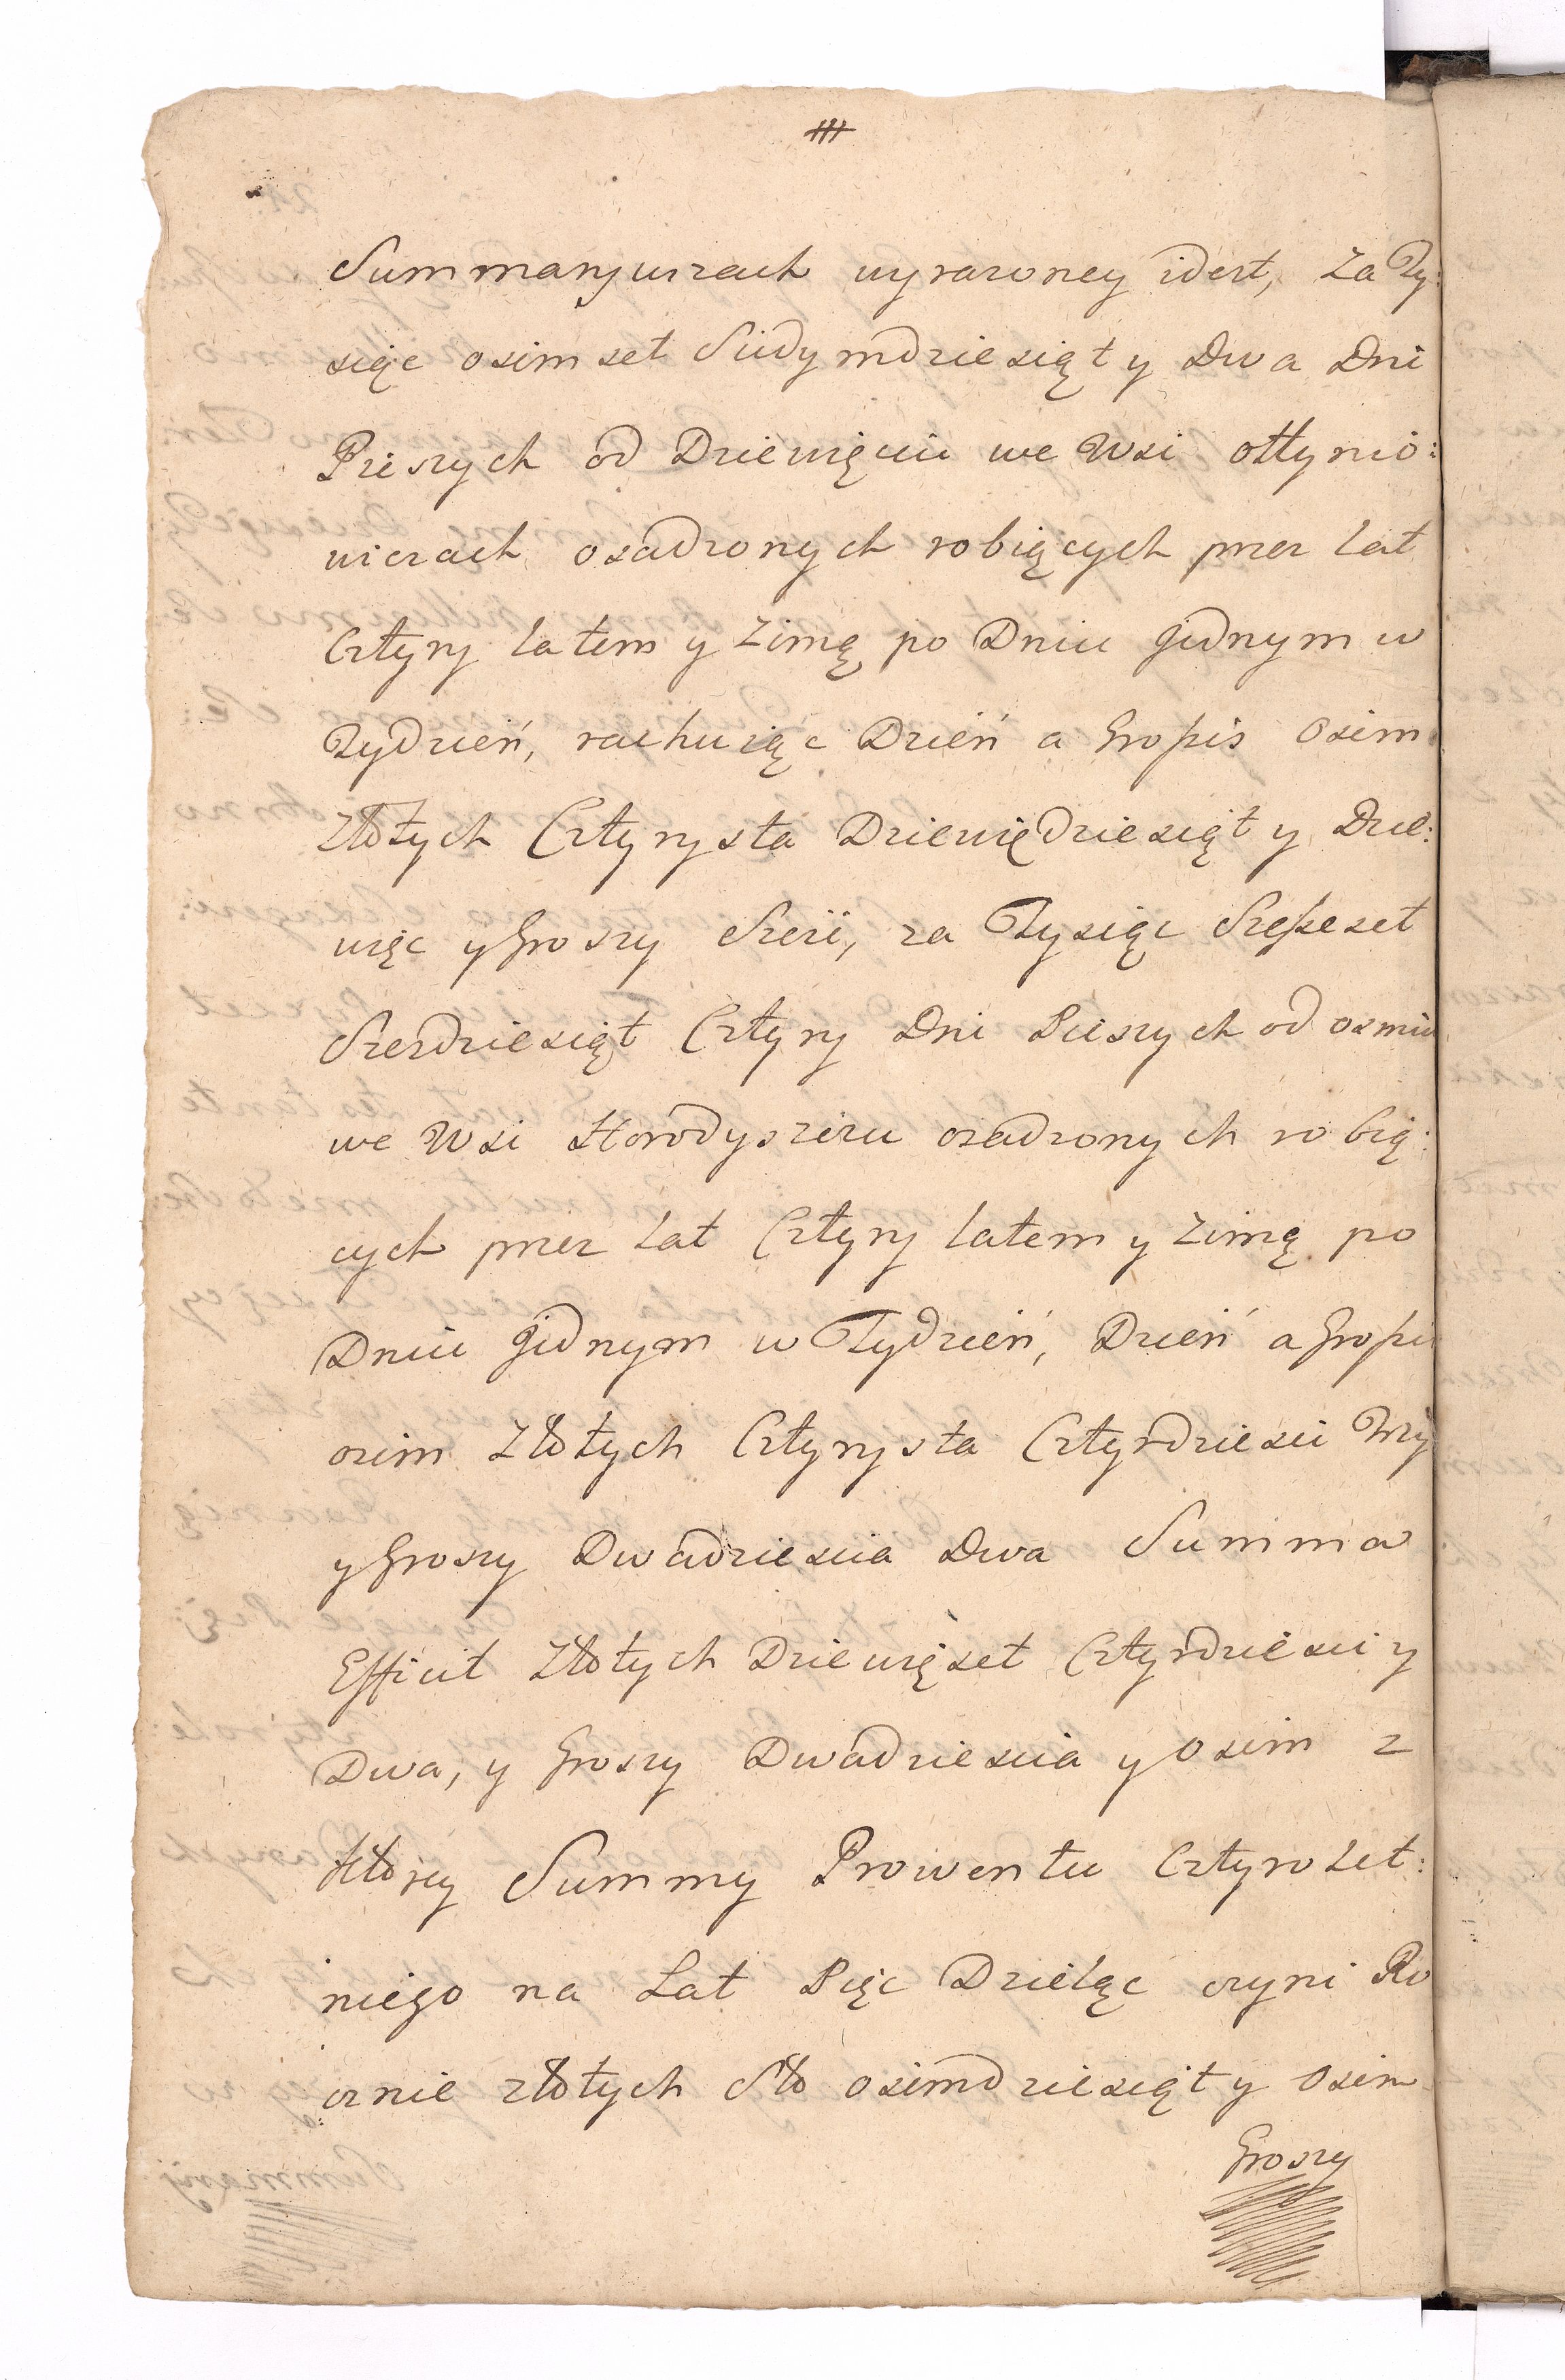 Summaryuszach wyrazoney idest, za Ty:
siąc osimset Siedymdziesiąt y Dwa Dni
Pieszych od Dziewięciu we Wsi ottynio:
wiczach osadzonych robiących przez lat
Cztyry latem y Zimą po Dniu Jednym w
Tydzień, rachuiąc Dzień a Groszs Osim
Złotych Cztyrysta Dziewiędziesiąt y Dzie:
więc y Groszy Szeić, za Tysiąc Szesćset
Szesdziesiąt Cztyry Dni Pieszych od osmiu
we Wsi Horodyszczu osadzonych robią:
cych przez Lat Cztyry latem y Zimą po
Dniu Jednym w Tydzień, Dzień a Groszi
osim Złotych Cztyrysta Cztyrdziesci Trzy
y Groszy Dwadziescia Dwa Summa
Efficit Złotych Dziewięset Cztyrdziesci y
Dwa, y Groszy Dwadziescia y Osim z
ktorey Summy Prowentu Cztyrolet:
niego na Lat Pięc Dzieląc czyni Ro
cznie złotych Sto osimdziesiąt y Osim
Groszy